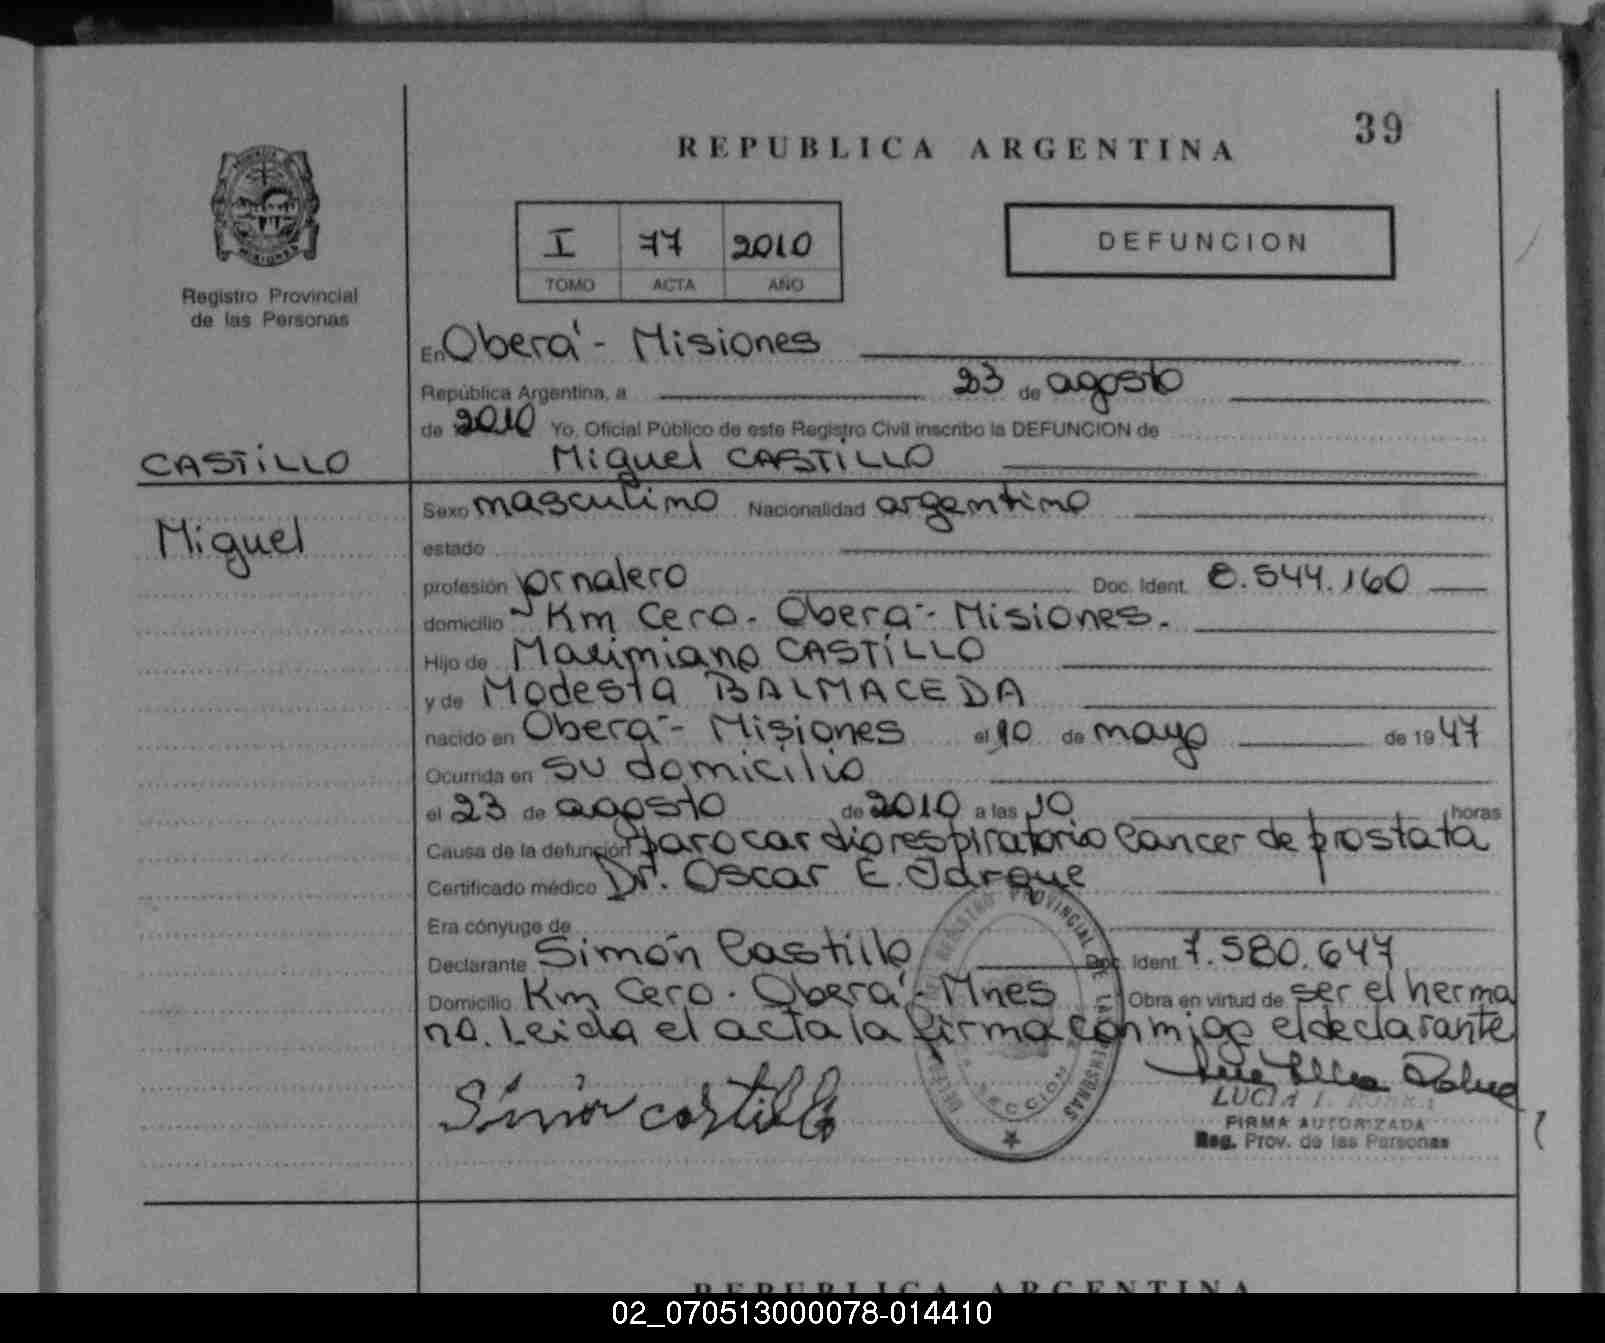 39
REPUBLICA ARGENTINA
I 77 2010
TOMO ACTA AÑO
DEFUNCION
MISIONES
Registro Provincial
de las Personas
En Oberá - Misiones
República Argentina, a 23 de agosto
de 2010 Yo, Oficial Público de este Registro Civil inscribo la DEFUNCION de
CASTILLO
Miguel CASTILLO
Miguel
Sexo masculino Nacionalidad argentino
estado
profesión jornalero Doc. Ident. 8.544.160
domicilio Km Cero. Oberá - Misiones.
Hijo de Maximiano CASTILLO
y de Modesta BALMACEDA
nacido en Oberá - Misiones el 10 de mayo de 1947
Ocurrida en su domicilio
el 23 de agosto de 2010 a las 10 horas
Causa de la defunción parocardiorespiratorio Cancer de prostata
Certificado médico Dr. Oscar E. Jarque
Era cónyuge de
Declarante Simón Castillo Doc. Ident. 7.580.647
Domicilio Km Cero. Oberá - Mnes Obra en virtud de ser el herma
no. Leida el acta la firma conmigo el declarante
Simón castillo
REGISTRO PROVINCIAL DE LAS PERSONAS
SECCION
LUCIA
FIRMA AUTORIZADA
Reg. Prov. de las Personas
REPUBLICA ARGENTINA
02_070513000078-014410